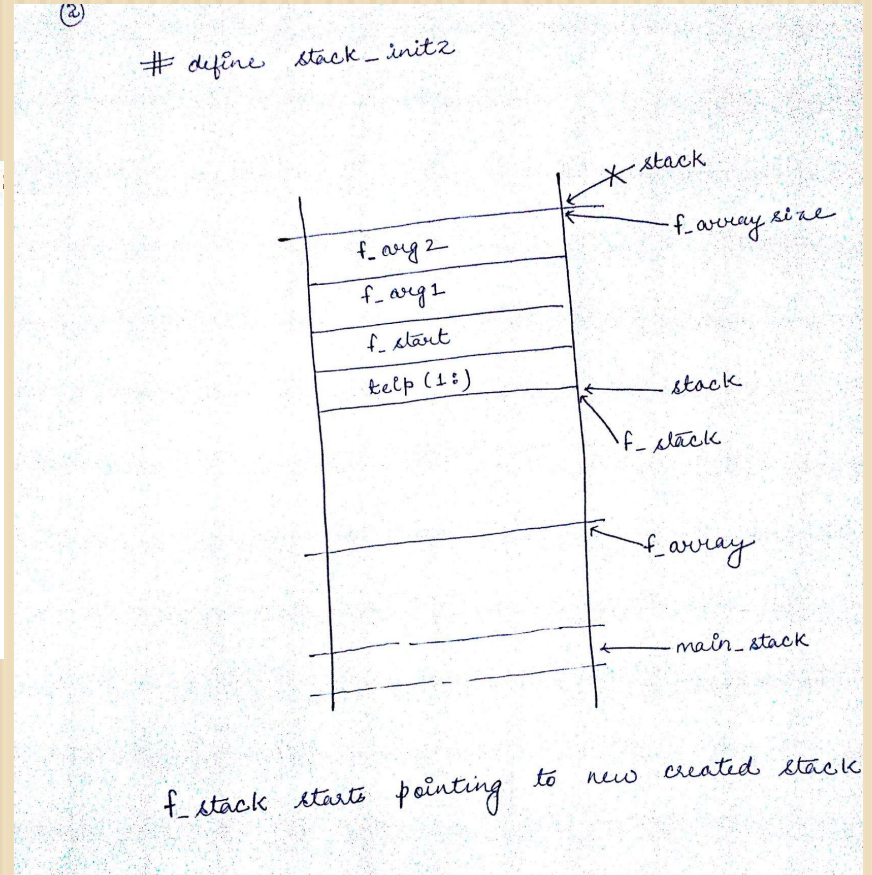 (2)
# define stack_init2
stack
f_array size
f_arg2
f_arg1
f_start
telp (1:)
stack
f_stack
f_array
main_stack
f_stack starts pointing to new created stack